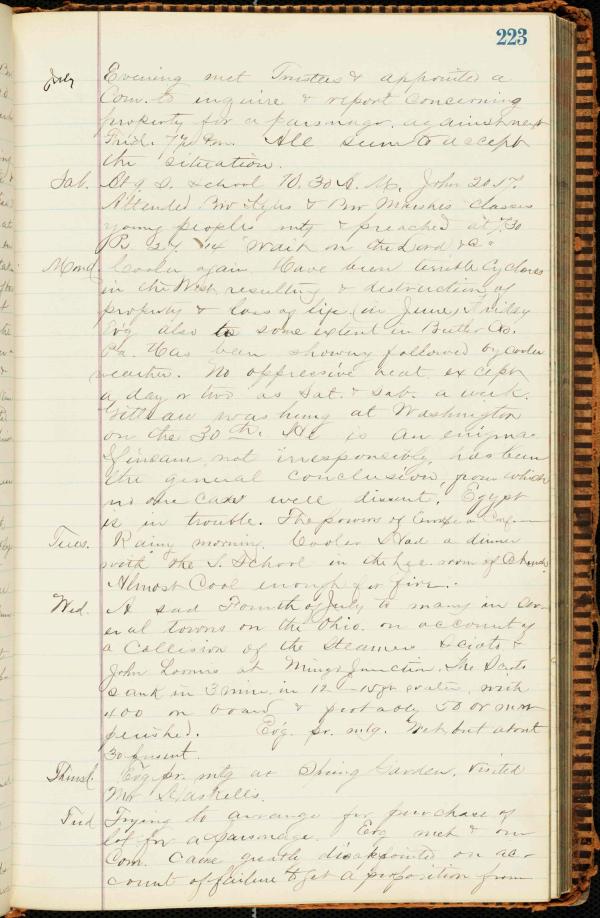 223
July Evening met Trustees & appointed a
Com. to enquire & report concerning
property for a parsonage, against next
Frid. 7½ P.M. All seem to accept
the situation.
Sab. At 9 S. School 10.30 A. M. John 20:17.
Attended Bro Tyler & Bro Marshes classes
young peoples mtg & preached at 7.30
Ps. 27. 14 "Wait on the Lord &c"
Mond. Cooler again. Have been terrible Cyclones
in the West resulting in destruction of
property & loss of life (in June) & Friday
Ev'g also to some extent in Butler Co.
Pa. Has been showery followed by cooler
weather. No oppressive heat except
a day or two as Sat. & Sab. a week.
Guiteau was hung at Washington
on the 30th. He is an enigma.
If insane, not irresponsibly, has been
the general conclusion, from which
no one can well dissent. Egypt
is in trouble. The powers of Europe in
Tues. Rainy morning. Cooler. Had a dinner
with the S. School in the lec. room of Church.
Almost Cool enough for fire.
Wed. A sad Fourth of July to many in sev-
eral towns on the Ohio on account of
a Collision of the Steamers Scioto &
John Loomis at Mingo Junction. The Scioto
sank in 3 min. in 12 – 15 ft water, with
400 on board & probably 50 or more
perished. Ev'g. pr. mtg. Wet but about
30 present.
Thursd. Ev'g pr. mtg at Spring Garden. Visited
Mr Haskells.
Frid Trying to arrange for purchase of
lot for a parsonage. Ev'g met & our
Com. came greatly disappointed on ac-
count of failure to get a proposition from